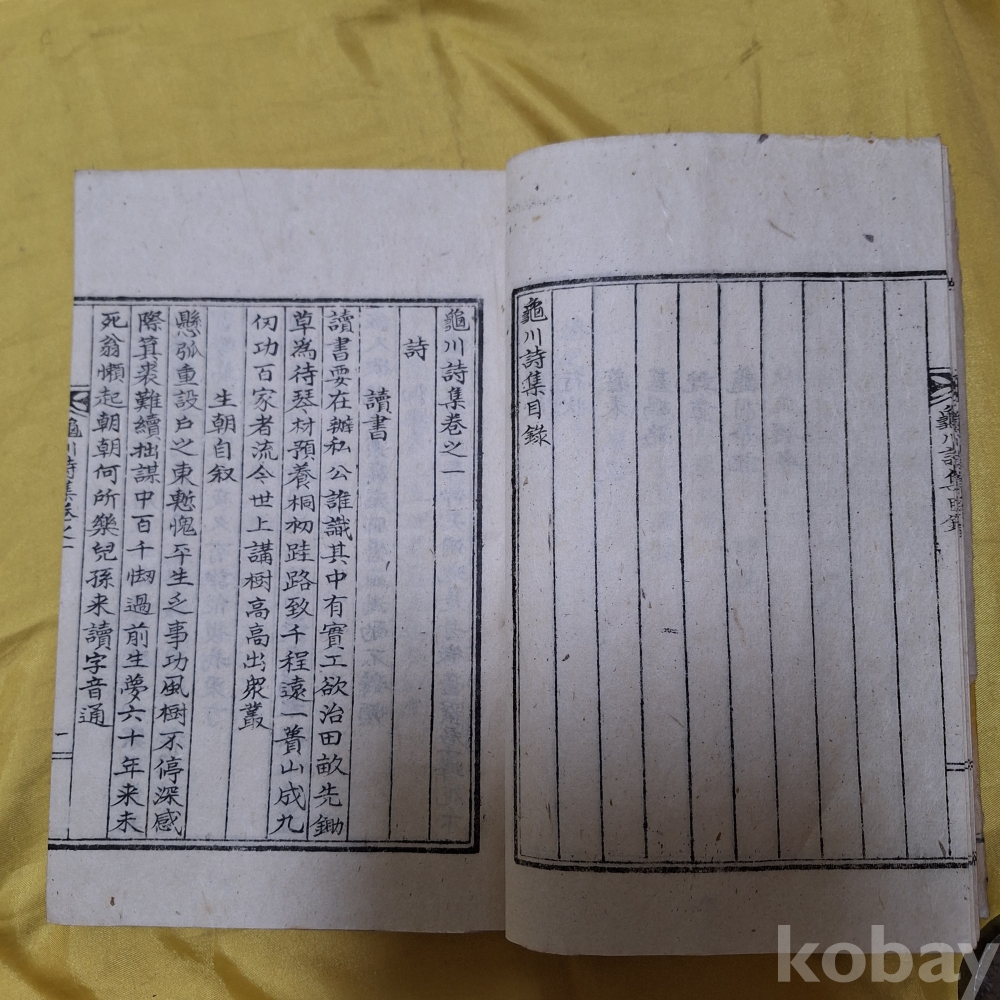 龜川詩集目錄
龜川詩集目錄
龜川詩集卷之一
詩
讀書
讀書要在辦私公誰識其中有實工欲治田畝先鋤
草為待琴材預養桐初跬路致千程遠一蕢山成九
仞功百家者流今世上講樹高高出衆叢
生朝自叙
懸弧重設戶之東慙愧平生乏事功風樹不停深感
際箕裘難續拙謀中百千刼過前生夢六十年来未
死翁懶起朝朝何所樂兒孫来讀字音通
龜川詩集卷之一
一
kobay